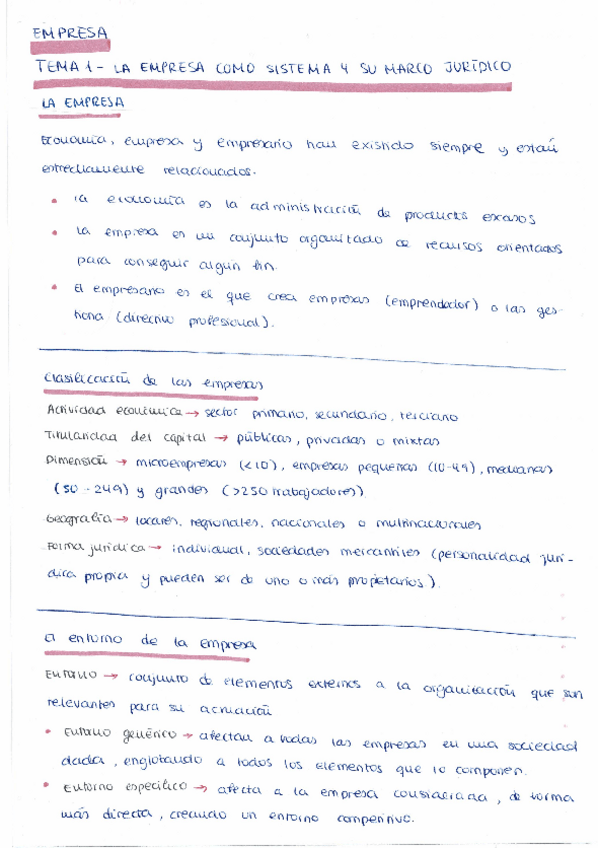 EMPRESA
TEMA 1 - LA EMPRESA COMO SISTEMA Y SU MARCO JURÍDICO
LA EMPRESA
Economía, empresa y empresario han existido siempre y están
estrechamente relacionados.
• La economía es la administración de productos escasos
• La empresa en un conjunto organizado de recursos orientados
para conseguir algún fin.
• El empresario es el que crea empresas (emprendedor) o las ges-
tiona (directivo profesional).
Clasificación de las empresas
Actividad económica → sector primario, secundario, terciario
Titularidad del capital → públicas, privadas o mixtas
Dimensión → microempresas (<10), empresas pequeñas (10-49), medianas
(50 - 249) y grandes (>250 trabajadores)
Geografía → locales, regionales, nacionales o multinacionales
Forma jurídica → individual, sociedades mercantiles (personalidad jurí-
dica propia y pueden ser de uno o más propietarios).
El entorno de la empresa
Entorno → conjunto de elementos externos a la organización que son
relevantes para su actuación
• Entorno genérico → afectan a todas las empresas en una sociedad
dada, englobando a todos los elementos que lo componen.
• Entorno específico → afecta a la empresa considerada, de forma
más directa, creando un entorno competitivo.